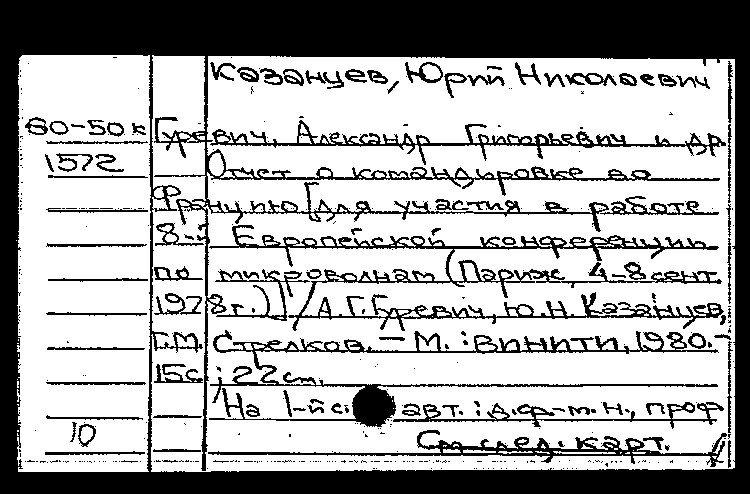 Казанцев, Юрий Николаевич
80-50к Гуревич, Александр Григорьевич и др.
1572 Отчет о командировке во
Францию [для участия в работе
8-й Европейской конференции
по микроволнам (Париж, 4-8 сент.
1978г.)] / А.Г.Гуревич, Ю.Н. Казанцев,
Г.М. Стрелков. – М. : ВИНИТИ, 1980. –
15с.; 22см.
На 1-й с. авт. : д.ф-м.н., проф
10 См. след. карт.